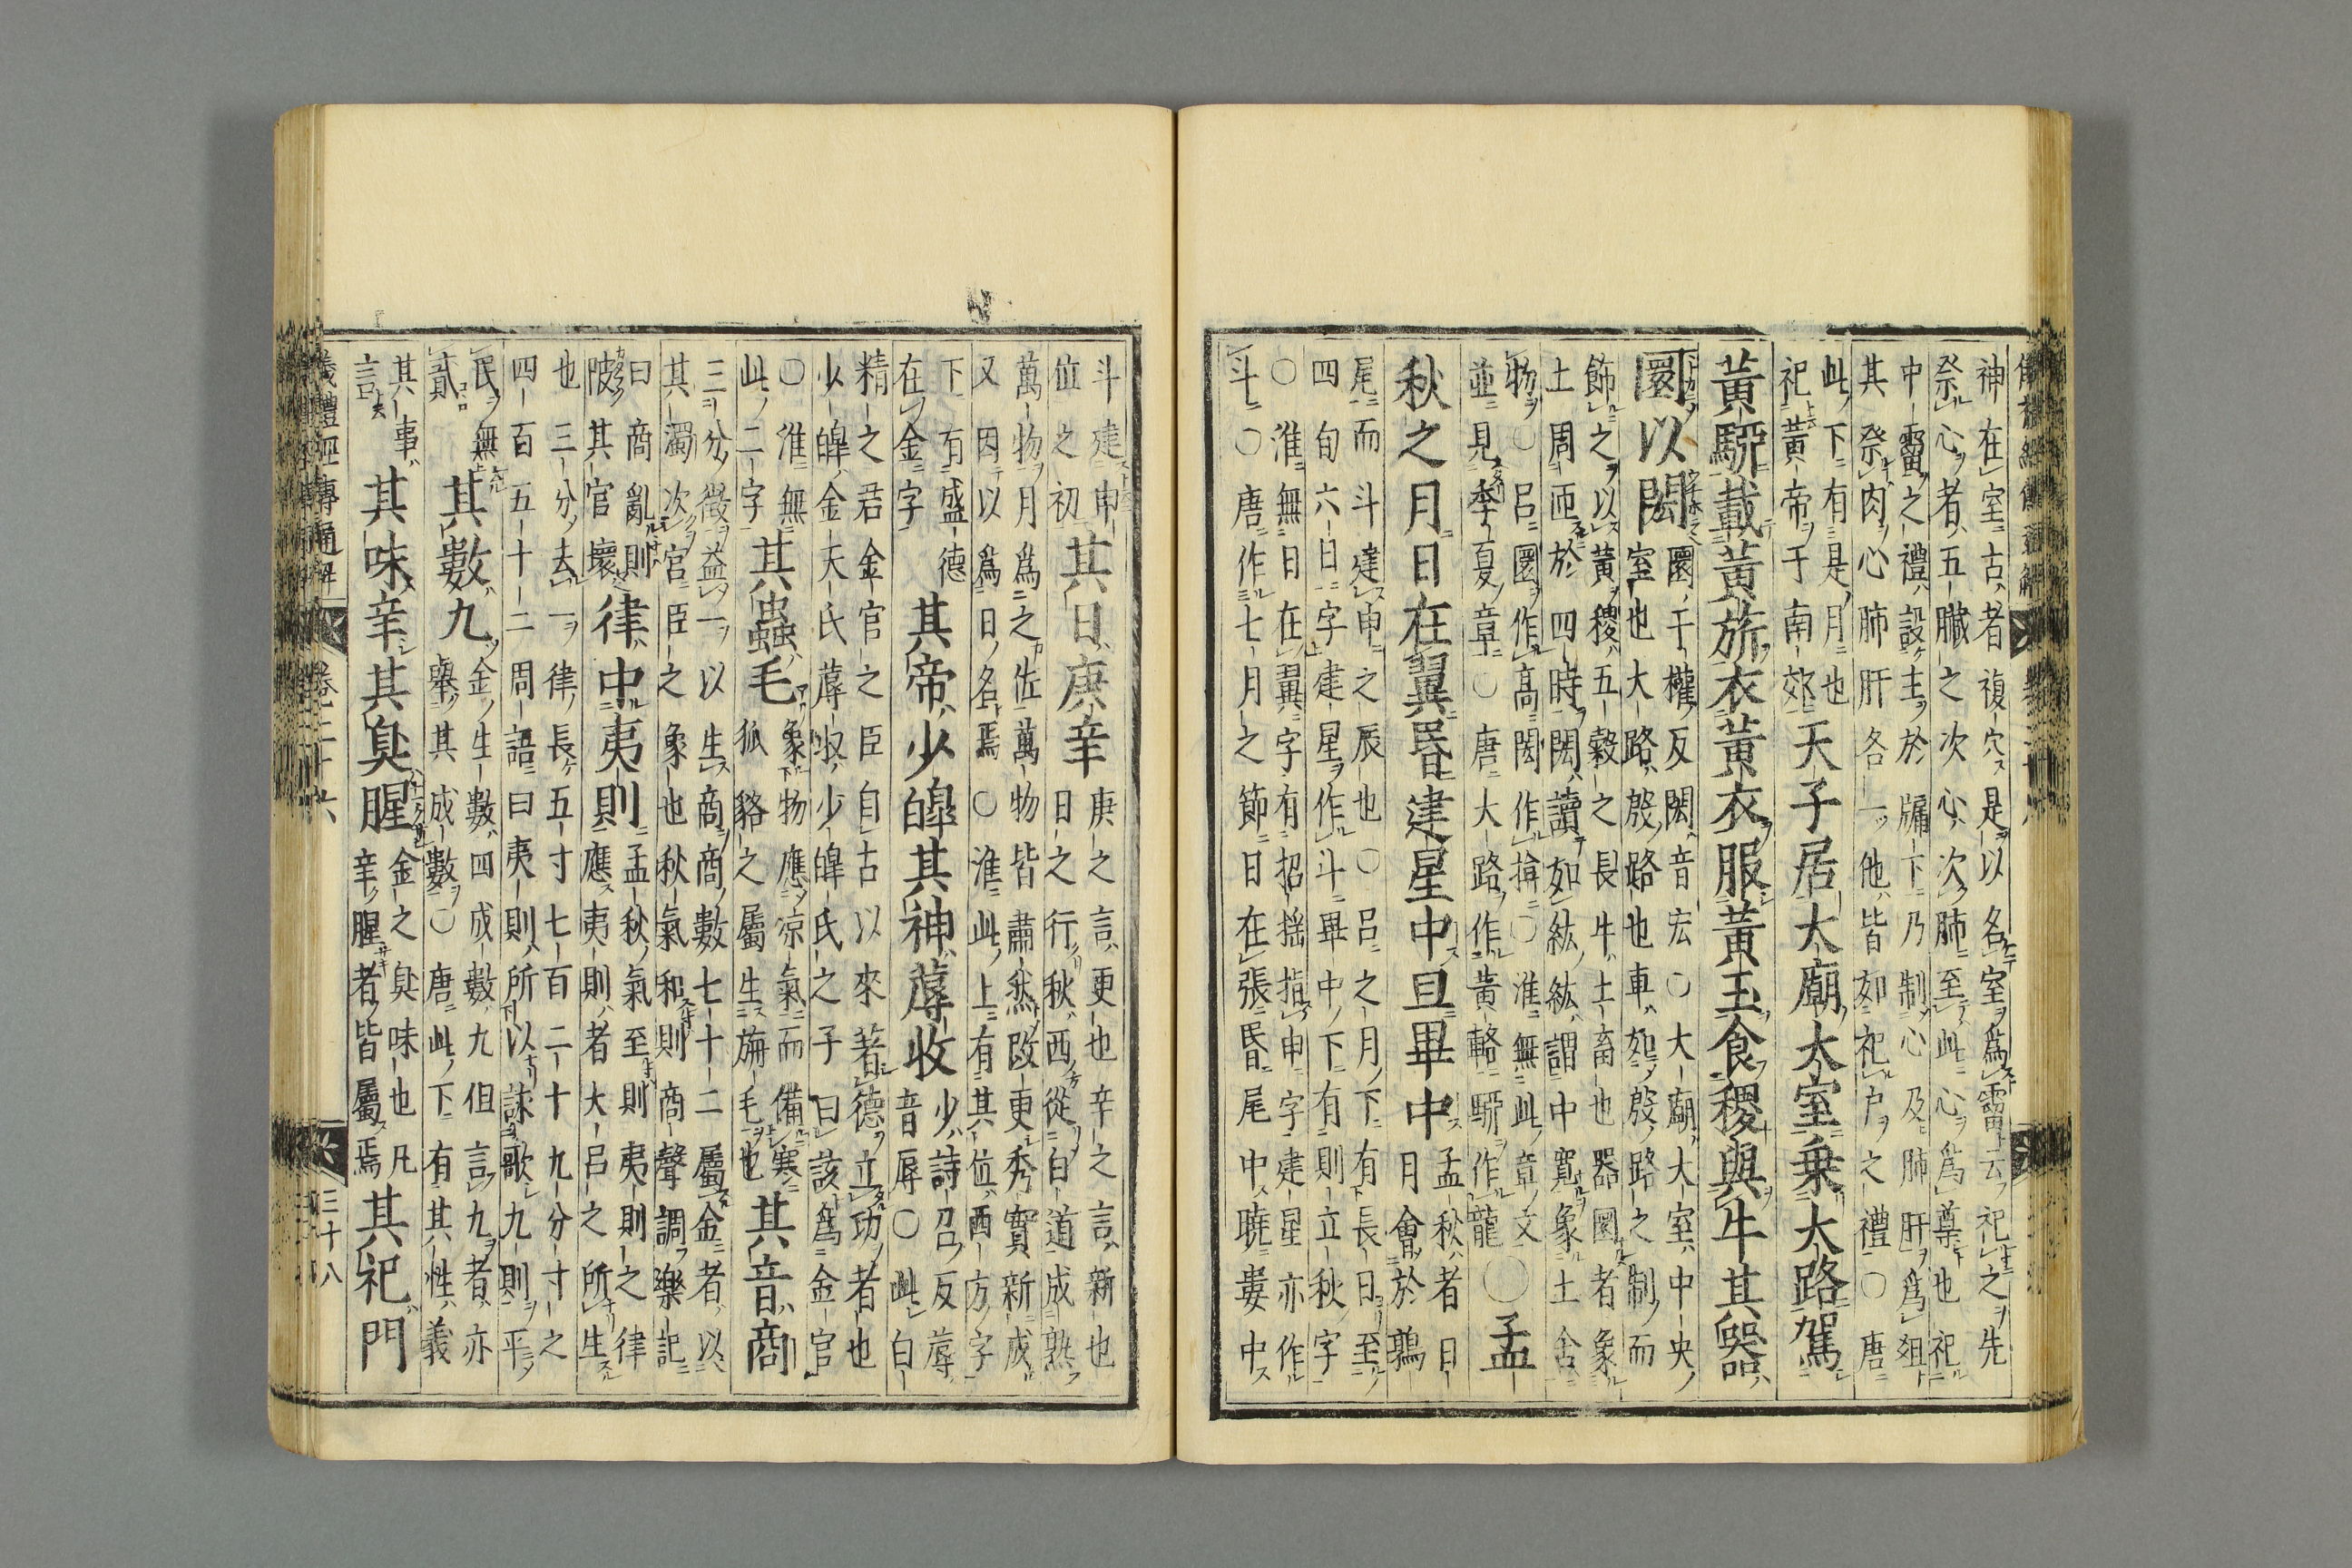 神在室古者複穴是以名室為霤云祀之先
祭心者五臟之次心次肺至此心為尊也祀
中霤之禮設主於牖下乃制心及肺肝為俎
其祭肉心肺肝各一他皆如祀戶之禮〇唐
此下有是月也
祀黃帝于南郊
天子居大廟大室乗大路駕
黃駵載黃旂衣黃衣服黃玉食稷與牛其器
圜以閎
圜于權反閎音宏〇大廟大室中央
室也大路殷路也車如殷路之制而
飾之以黃稷五穀之長牛土畜也器圜者象
土周匝於四時閎讀如紘紘謂中寬象土含
物〇呂圜作高閎作揜〇淮無此章文
並見季夏章〇唐大路作黃輅駵作龍〇
孟
秋之月日在翼昬建星中旦畢中
孟秋者日
月會於鶉
尾而斗建申之辰也〇呂之月下有長日至
四旬六日字建星作斗畢中下有則立秋字
〇淮無日在翼字有招搖指申字建星亦作
斗〇唐作七月之節日在張昬尾中曉婁中
斗建申
位之初
其日庚辛
庚之言更也辛之言新也
日之行秋西從白道成熟
萬物月為之佐萬物皆肅然改更秀實新成
又因以為日名焉〇淮此上有其位西方字
下有盛德
在金字
其帝少皥其神蓐收
少詩召反蓐
音辱〇此白
精之君金官之臣自古以來著德立功者也
少皥金天氏蓐收少皥氏之子曰該為金官
〇淮無
此二字
其蟲毛
象物應凉氣而備寒
狐貉之屬生旃毛也
其音商
三分徵益一以生商商數七十二屬金者以
其濁次官臣之象也秋氣和則商聲調樂記
曰商亂則
陂其官壞
律中夷則
孟秋氣至則夷則之律
應夷則者大呂之所生
也三分去一律長五寸七百二十九分寸之
四百五十二周語曰夷則所以詠歌九則平
民無
貳
其數九
金生數四成數九但言九者亦
舉其成數〇唐此下有其性義
其事
言
其味辛其臭腥
金之臭味也凡
辛腥者皆屬焉
其祀門
儀禮經傳通解 卷二十六 三十八